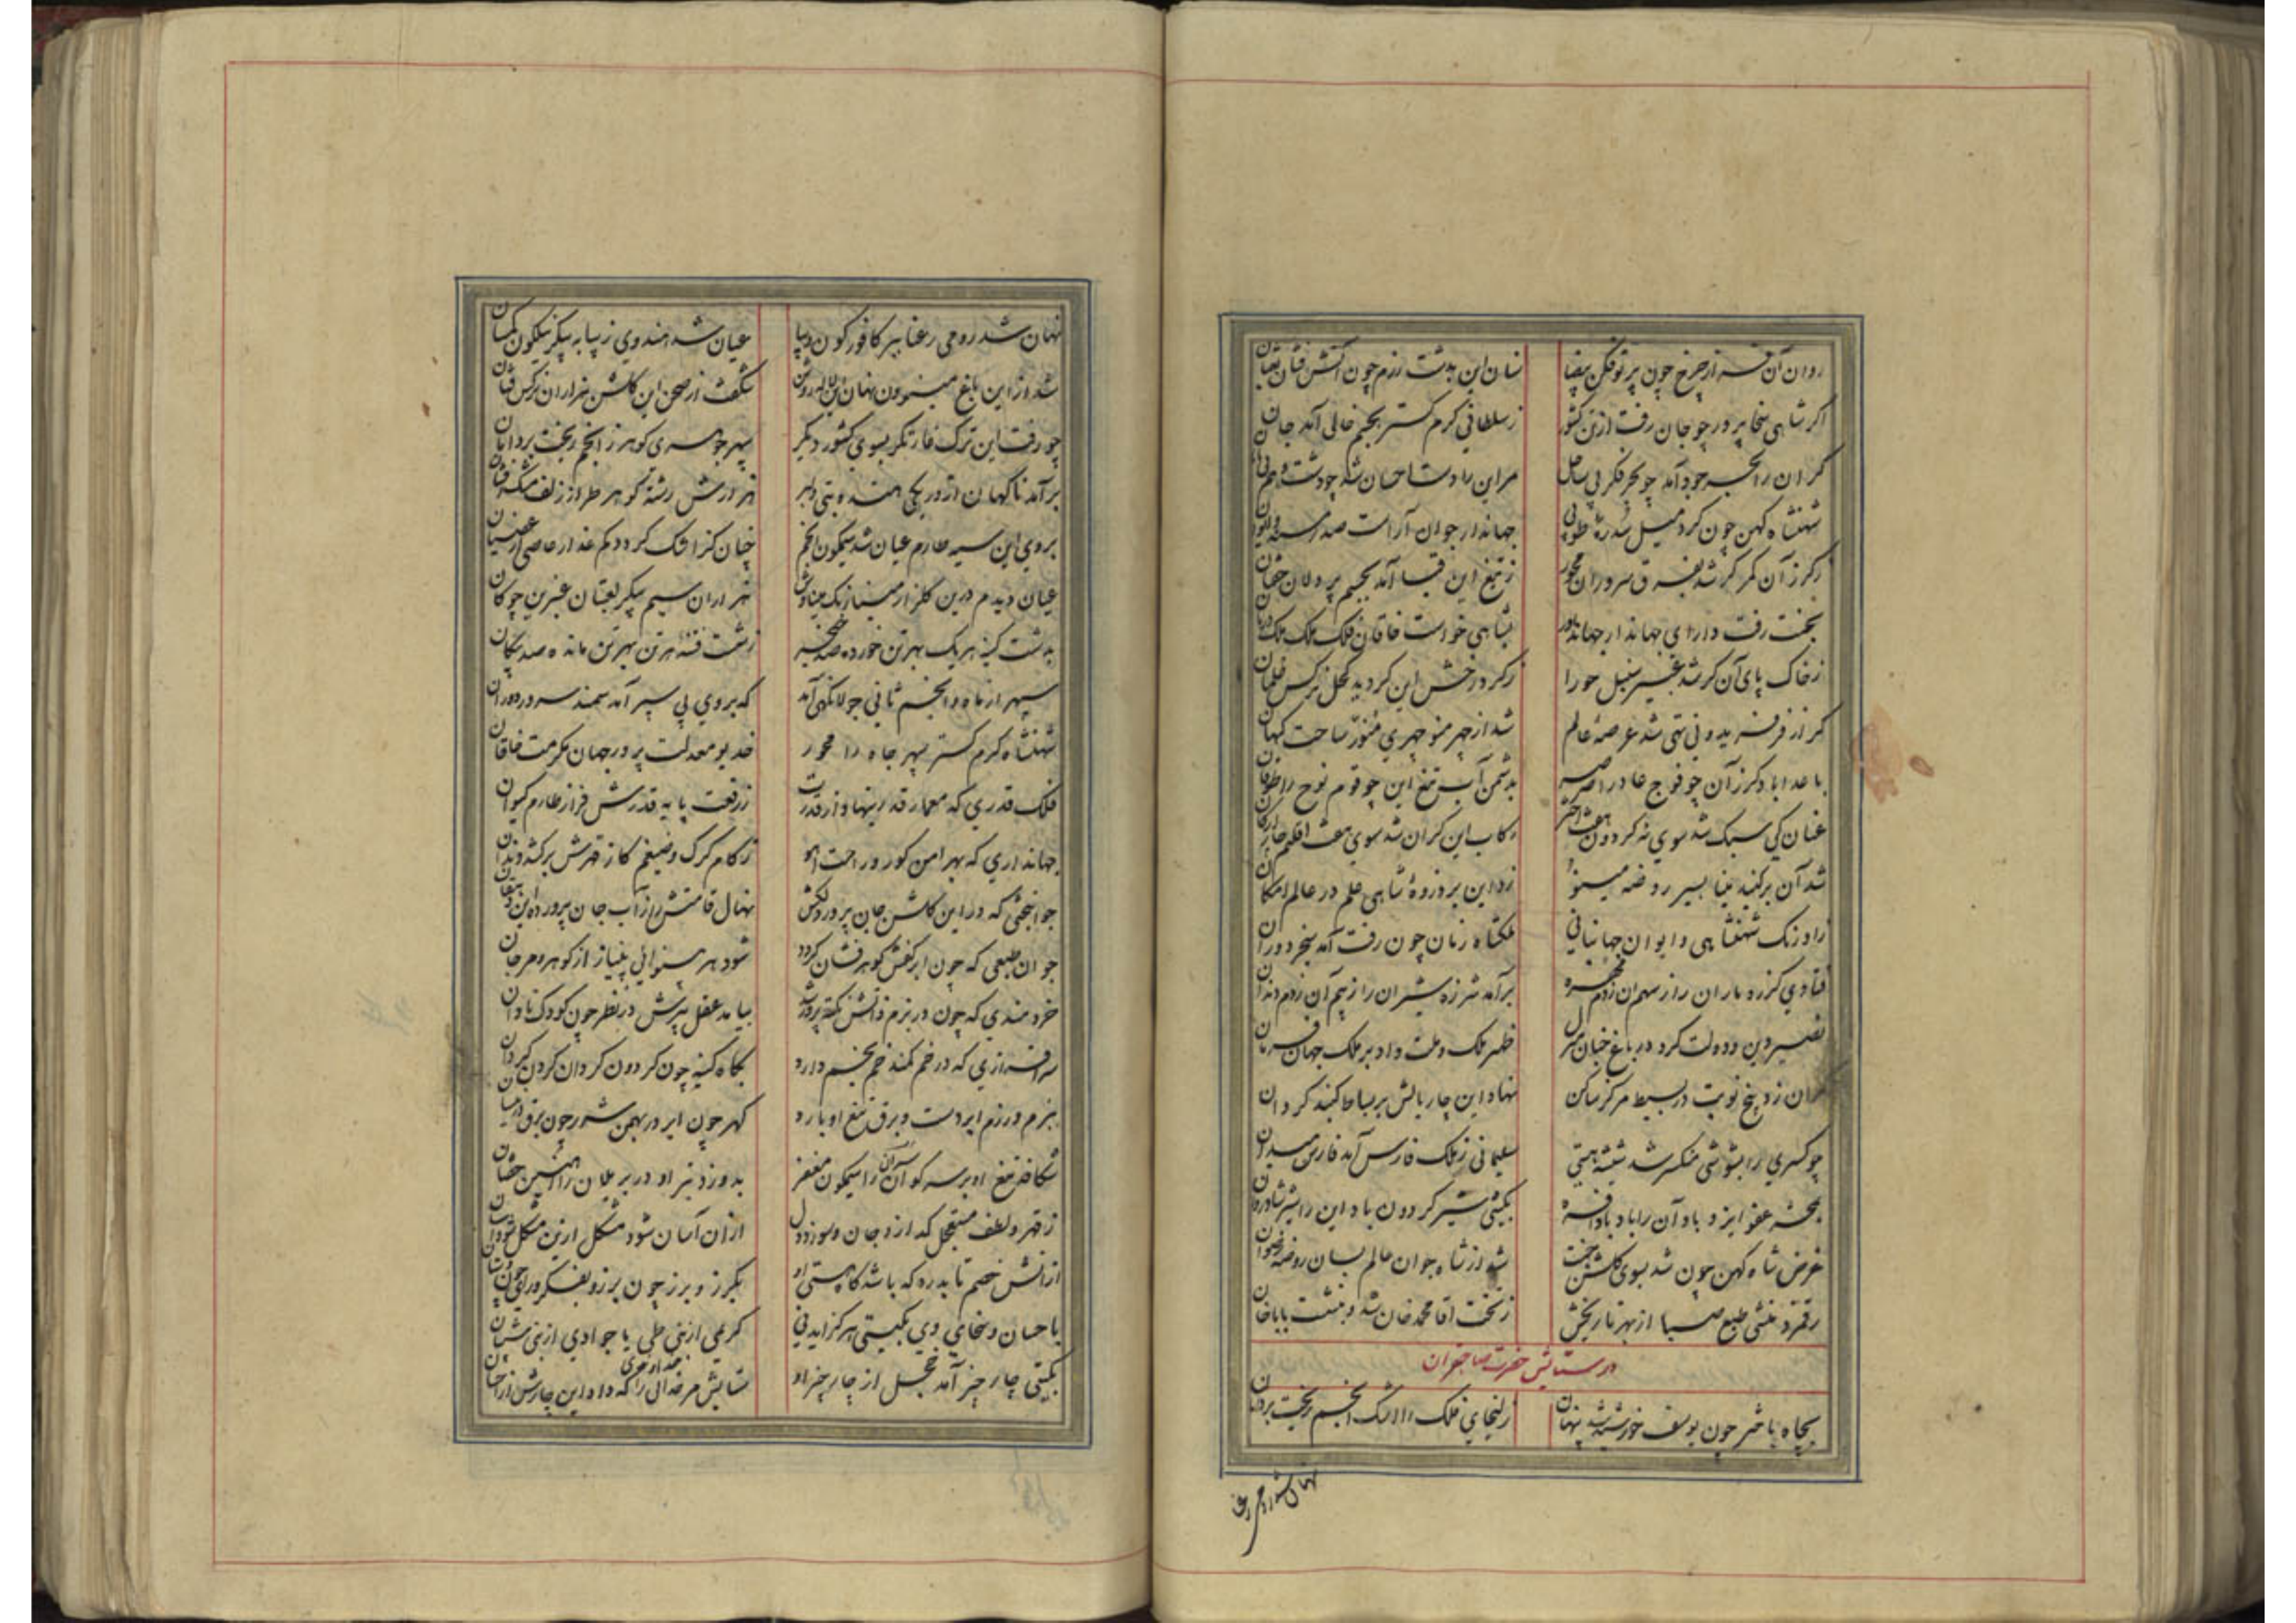 روان آن شه از چرخ چون پرتوفکن بیضا
نسان این بدشت رزم چون آتش فشان ثعبان
اگر شاهی سخا پرور چو جان رفت از تن کشور
ز سلطانی کرم گستر بجسم خالی آمد جان
گر آن را بحر جود آمد چو بحر فکر بی ساحل
مر این را دست احسان شد چو دشت وهم بی پایان
شهنشاه کهن چون کرد میل سدره و طوبی
جهاندار جوان آراست صدر مسند و ایوان
ز گرز آن گر کز شد بفرق سروران مغفر
ز تیغ این قبا آمد بجسم پر دلان خفتان
بجنت رفت دارای جهاندار جهانداور
بشاهی خواست خاقان فلک ملک ملک دربان
ز خاک پای آن گر شد عبیر سنبل حورا
ز گرد رخش این گردید کحل نرگس غلمان
گر از فر فریدونی تهی شد عرصهٔ عالم
شد از چهر منوچهری منور ساحت کیهان
باعدا باد گرز آن چو فوج عاد را صرصر
بدشمن آب تیغ این چو قوم نوح را طوفان
عنان کی سبک شد سوی نه گردون هفت اختر
رکاب این گران شد سوی هفت اقلیم چار ارکان
شد آن بر گنبد مینا بسیر روضهٔ مینو
زد این بر ذروهٔ شاهی علم در عالم امکان
ز اورنگ شهنشاهی و ایوان جهانبانی
ملکشاه زمان چون رفت آمد سنجر دوران
فتادی گرزه ماران را ز سهم آن ز دم مهره
برآمد شرزه شیران را ز بیم آن ز دم دندان
نصیر دین و دولت کرد در باغ جنان منزل
ظهیر ملک و ملت داد بر ملک جهان فرمان
گر آن زد پنج نوبت در بسیط مرکز ساکن
نهاد این چار بالش بر بساط گنبد گردان
چو کسری را بشورشی منکسر شد شیشهٔ هستی
سلیمانی ز ملک فارس آمد فارس میدان
بحشر عفو ایزد باد آن را باد بادافره
بگیتی شیر گردون باد این را شیر شادروان
غرض شاه کهن چون شد بسوی گلشن جنت
شد از شاه جوان عالم بسان روضهٔ رضوان
رقم زد منشی طبع صبا از بهر تاریخش
ز تخت آقا محمد خان شد و بنشست بابا خان
در ستایش حضرت صاحبقران
بچاه باختر چون یوسف خورشید شد پنهان
زلیخای فلک را اشک انجم ریخت بر دامان
نهان شد رومی رعنا
نهان شد رومی رعنا ببر کافور گون دیبا
عیان شد هندوی زیبا به پیکر نیلگون کتان
شد از این باغ مینوون نهان این لاله روشن
شکفت از صحن این گلشن هزاران نرگس فتان
چو رفت این ترک غارتگر بسوی کشور دیگر
سپهر جوهری گوهر ز انجم ریخت بر دامان
برآمد ناگهان از در یکی هندو بتی دلبر
هر ارزش رشته گوهر طراز زلف مشک افشان
بروی این سیه طارم عیان شد سیمگون انجم
چنان کز اشک گردد گم عذار عاصی از عصیان
عیان دیدم درین گلزار مینا رنگ میناوش
هزاران سیم پیکر لعبتان عنبرین چوگان
بدشت کینه هر یک بهر تن خورده صد خنجر
ز شست فتنه هر تن بهر تن مانده صد پیکان
سپهر از ماه و انجم ثانی جولانگهی آمد
که بر وی پی سپر آمد سمند سرور دوران
شهنشاه کرم گستر سپهر جاه را محور
خدیو معدلت پرور جهان مکرمت خاقان
فلک قدری که معمار قدر بنهاد از قدرت
ز رفعت پایه قدرش فراز طارم کیوان
جهانداری که بهر امن گور و راحت آهو
ز کام گرگ و ضیغم گاز قهرش برکشد دندان
جوانبختی که در این گلشن جان پرور دلکش
نهال قامتش را ز آب جان پرورده این دهقان
جوان طبعی که چون ابر کفش گوهر فشان گردد
شود هر بینوائی بی نیاز از گوهر و مرجان
خردمندی که چون در بزم دانش نکته پرور شد
بیامد عقل پیرش در نظر چون کودک نادان
سرافرازی که در خم کمند خم بخم دارد
بگاه کینه چون گردون گردان گردن گردان
ببزم و رزم ابر دست و برق تیغ او بارد
گهر چون ابر در بهمن شرر چون برق در نیسان
شکافد تیغ او بر سر گوان سران را سیمگون مغفر
بدوزد تیر او در بر یلان را آهنین خفتان
ز قهر و لطف مستعجل گدازد جان و سوزد دل
از آن آسان شود مشکل از این مشکل شود آسان
از آتش خصم تابد ره که باشد گاه پستی او
بگرز و برز چون برزو بفکر و رای چون دستان
باحسان و سخای وی بگیتی هرگز آید نی
کریمی از بنی طی یا جوادی از بنی شیبان
بگیتی چار چیز آمد خجل از چار چیز او
ستایش مر خدائی را که داد این چارش از احسان